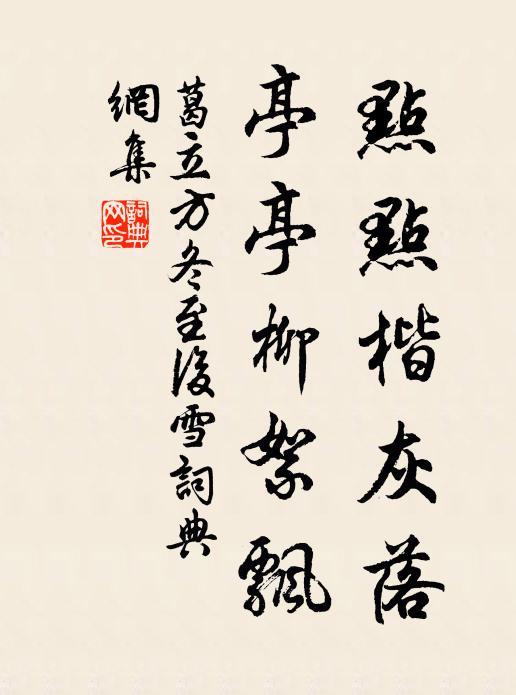 點點楷灰落
亭亭柳絮飄
葛立方冬至後雪詞典
網集
詞典
网印